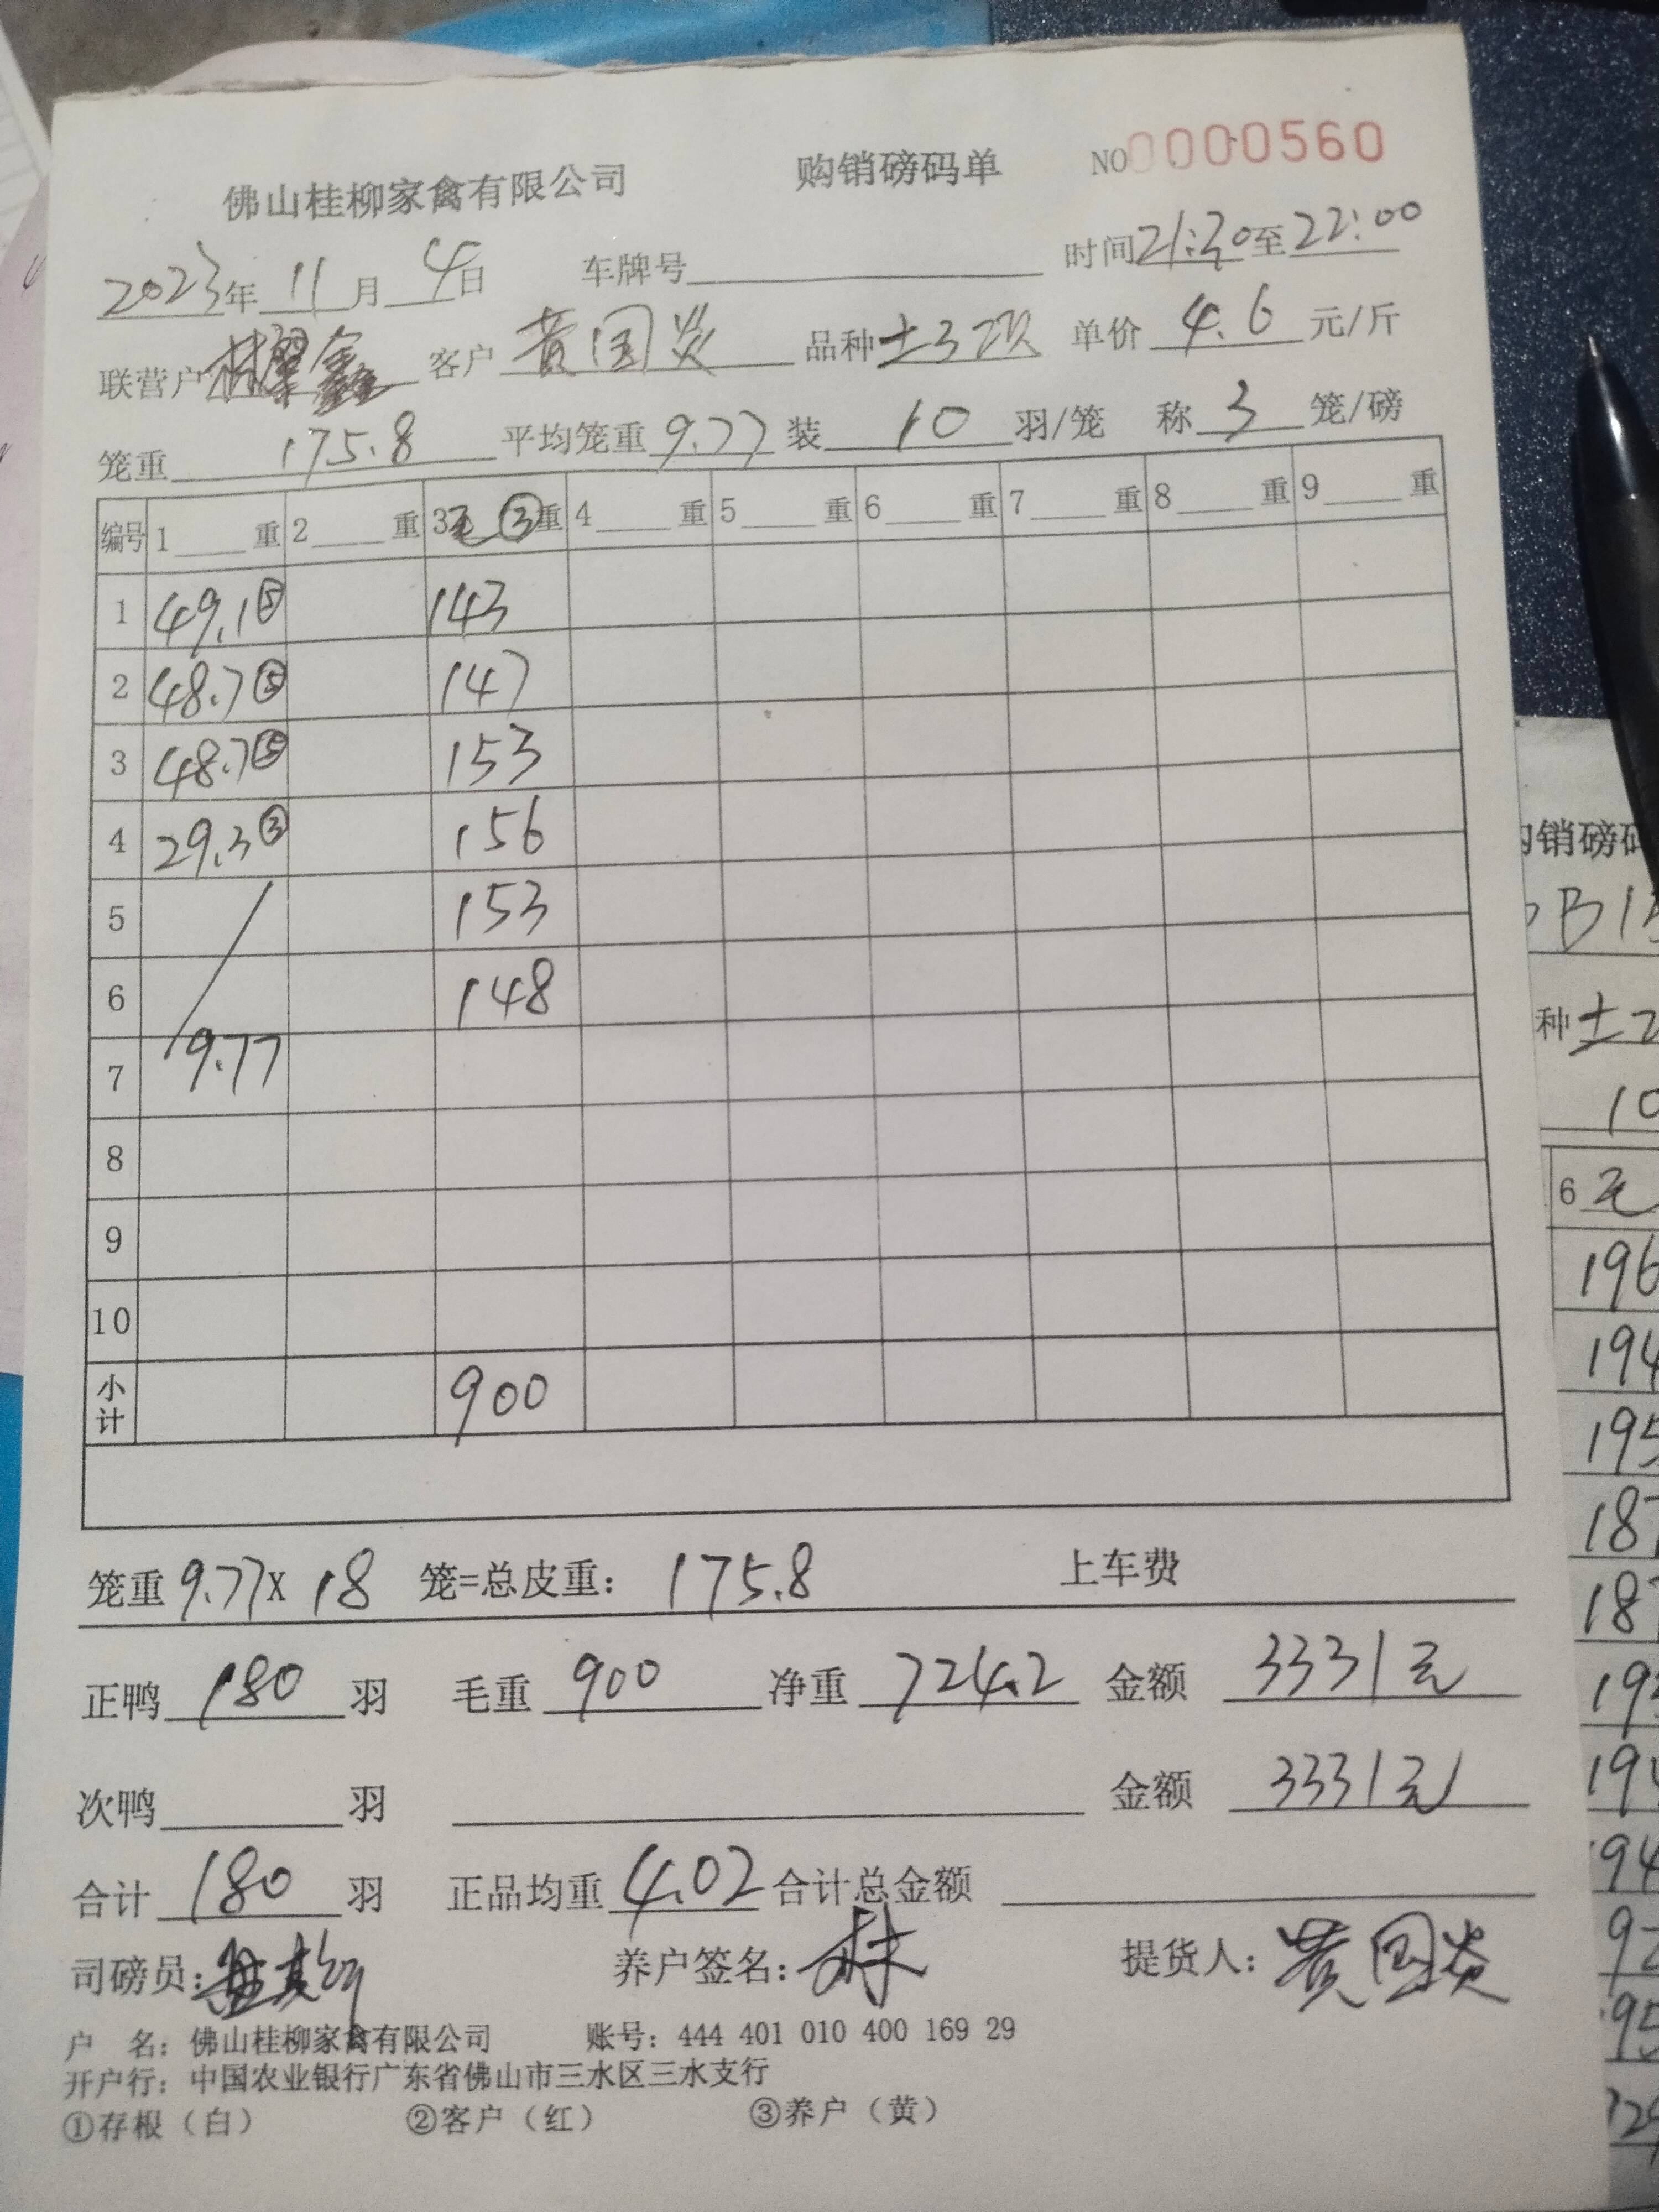 佛山桂柳家禽有限公司 购销磅码单 NO 0000560
2023年 11月 4日 车牌号 时间 21:30至22:00
联营户 客户 黄国炎 品种 土3项 单价 4.6 元/斤
笼重 175.8 平均笼重 9.77 装 10 羽/笼 称 3 笼/磅
编号 1 重 2 重 3毛③重 4 重 5 重 6 重 7 重 8 重 9 重
1 49.1⑤ 143
2 48.7⑤ 147
3 48.7⑤ 153
4 29.3③ 156
5 153
6 148
7 9.77
8
9
10
小计 900
笼重 9.77X 18 笼=总皮重: 175.8 上车费
正鸭 180 羽 毛重 900 净重 724.2 金额 3331元
次鸭 羽 金额 3331元
合计 180 羽 正品均重 4.02 合计总金额
司磅员: 养户签名:林 提货人: 黄国炎
户 名: 佛山桂柳家禽有限公司 账号: 444 401 010 400 169 29
开户行: 中国农业银行广东省佛山市三水区三水支行
①存根（白） ②客户（红） ③养户（黄）
购销磅码
B15
种 土2
10
6 毛
196
194
195
187
187
195
194
194